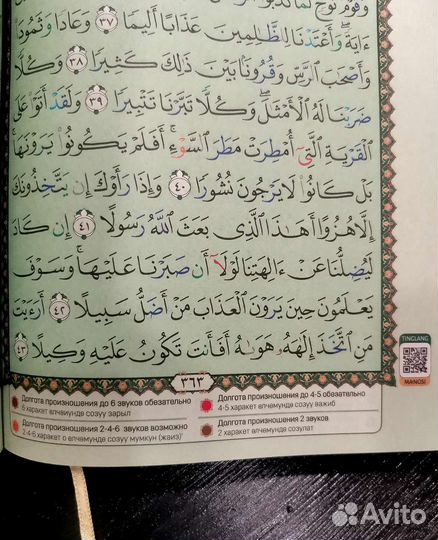 وَقَوْمَ نُوحٍ لَّمَّا كَذَّبُوا۟
ءَايَةً ۖ وَأَعْتَدْنَا لِلظَّٰلِمِينَ عَذَابًا أَلِيمًا ٣٧ وَعَادًا وَثَمُودَا۟
وَأَصْحَٰبَ ٱلرَّسِّ وَقُرُونًۢا بَيْنَ ذَٰلِكَ كَثِيرًا ٣٨ وَكُلًّا
ضَرَبْنَا لَهُ ٱلْأَمْثَٰلَ ۖ وَكُلًّا تَبَّرْنَا تَتْبِيرًا ٣٩ وَلَقَدْ أَتَوْا۟ عَلَى
ٱلْقَرْيَةِ ٱلَّتِىٓ أُمْطِرَتْ مَطَرَ ٱلسَّوْءِ ۚ أَفَلَمْ يَكُونُوا۟ يَرَوْنَهَا ۚ
بَلْ كَانُوا۟ لَا يَرْجُونَ نُشُورًا ٤٠ وَإِذَا رَأَوْكَ إِن يَتَّخِذُونَكَ
إِلَّا هُزُوًا أَهَٰذَا ٱلَّذِى بَعَثَ ٱللَّهُ رَسُولًا ٤١ إِن كَادَ
لَيُضِلُّنَا عَنْ ءَالِهَتِنَا لَوْلَآ أَن صَبَرْنَا عَلَيْهَا ۚ وَسَوْفَ
يَعْلَمُونَ حِينَ يَرَوْنَ ٱلْعَذَابَ مَنْ أَضَلُّ سَبِيلًا ٤٢ أَرَءَيْتَ
مَنِ ٱتَّخَذَ إِلَٰهَهُۥ هَوَىٰهُ أَفَأَنتَ تَكُونُ عَلَيْهِ وَكِيلًا ٤٣
TINGLANG
MANOSI
٣٦٣
Долгота произношения до 6 звуков обязательно
6 харакет өлчөмүндө созуу зарыл
Долгота произношения до 4-5 обязательно
4-5 харакет өлчөмүндө созуу важиб
Долгота произношения 2-4-6 звуков возможно
2-4-6 харакет о өлчөмүндө созуу мумкун (жаиз)
Долгота произношения 2 звуков
2 харакет өлчөмүндө созулат
Avito